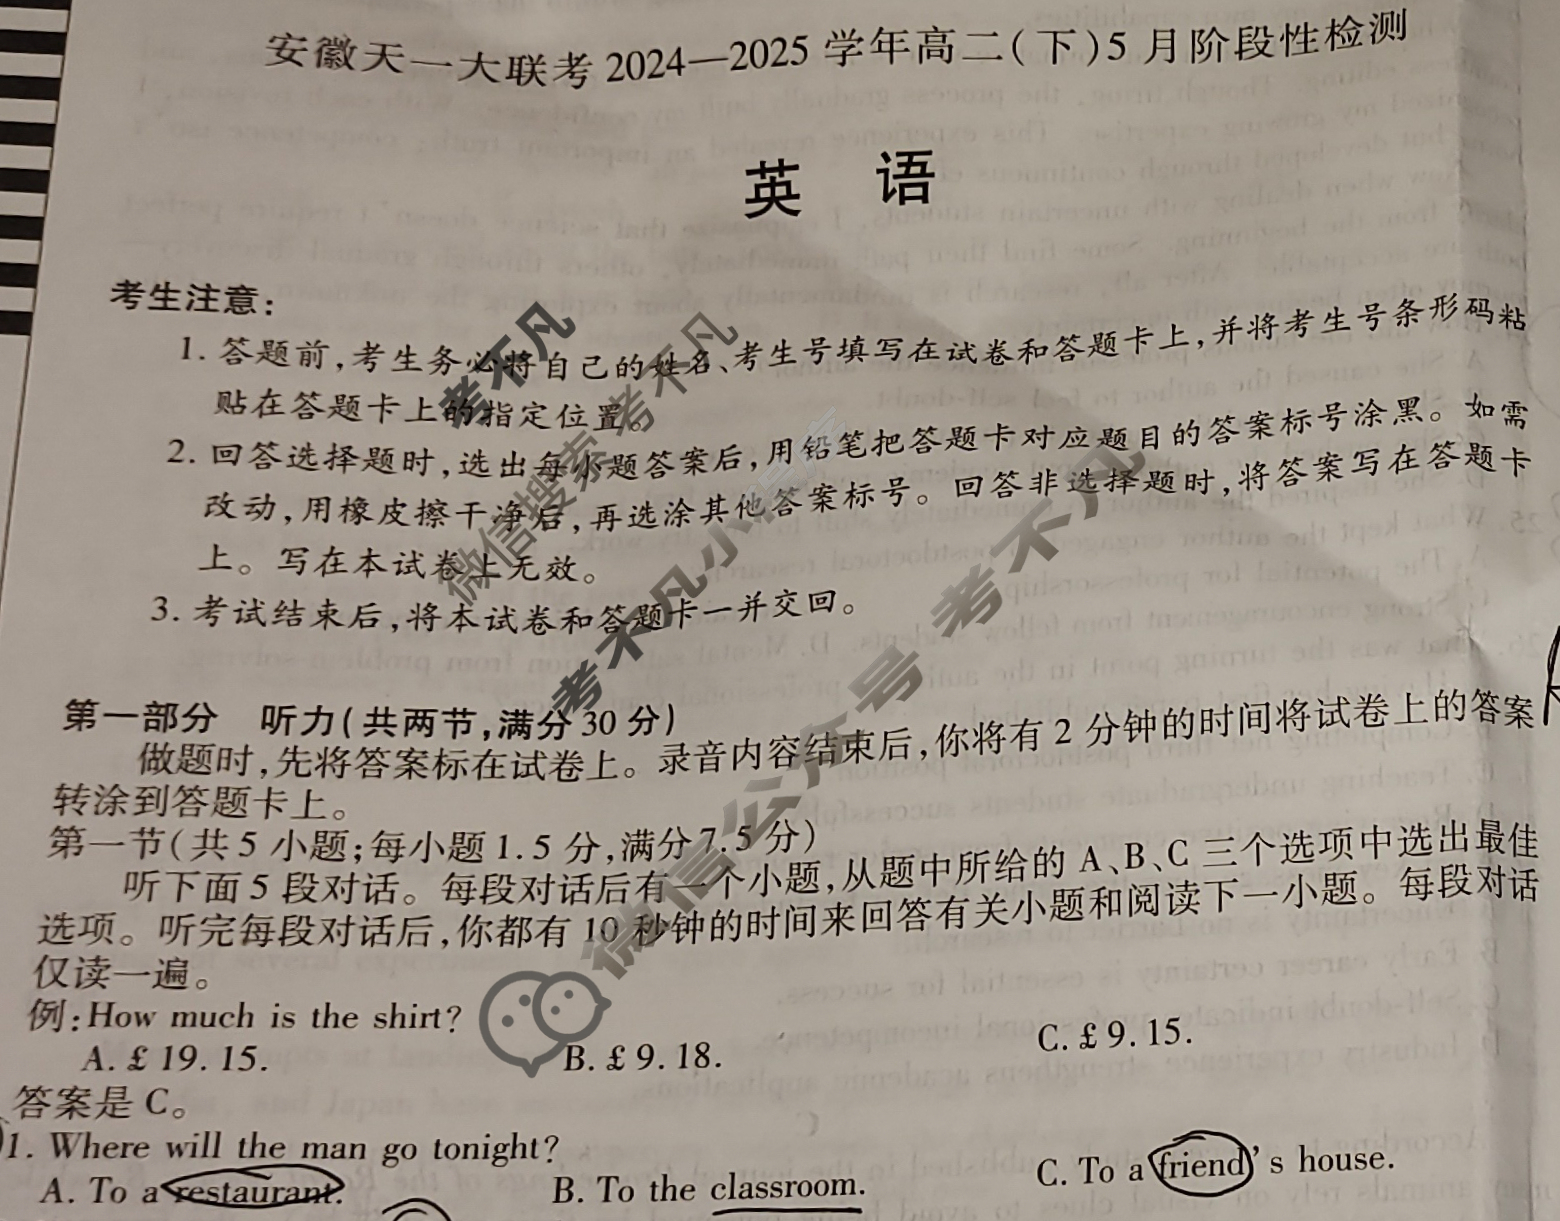 安徽天一大联考2024—2025学年高二(下)5月阶段性检测
英 语
考生注意:
1. 答题前,考生务必将自己的姓名、考生号填写在试卷和答题卡上,并将考生号条形码粘
贴在答题卡上的指定位置。
2. 回答选择题时,选出每小题答案后,用铅笔把答题卡对应题目的答案标号涂黑。如需
改动,用橡皮擦干净后,再选涂其他答案标号。回答非选择题时,将答案写在答题卡
上。写在本试卷上无效。
3. 考试结束后,将本试卷和答题卡一并交回。
第一部分 听力(共两节,满分30分)
做题时,先将答案标在试卷上。录音内容结束后,你将有2分钟的时间将试卷上的答案
转涂到答题卡上。
第一节(共5小题;每小题1.5分,满分7.5分)
听下面5段对话。每段对话后有一个小题,从题中所给的A、B、C三个选项中选出最佳
选项。听完每段对话后,你都有10秒钟的时间来回答有关小题和阅读下一小题。每段对话
仅读一遍。
例:How much is the shirt?
A. £ 19. 15. B. £ 9. 18. C. £ 9. 15.
答案是C。
1. Where will the man go tonight?
A. To a restaurant. B. To the classroom. C. To a friend's house.
考不凡
微信搜索考不凡
考不凡小程序
微信公众号 考不凡